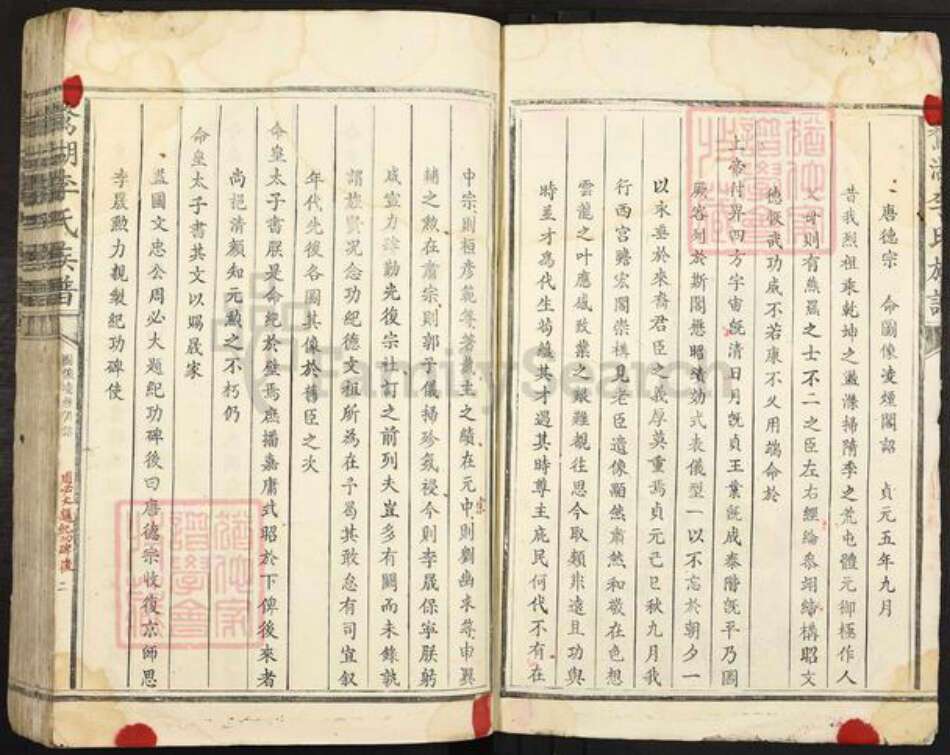 唐德宗 命圖像凌煙閣詔 貞元五年九月
昔我烈祖乘乾坤之盪滌掃隋季之荒屯體元御極作人
父母則有熊羆之士不二之臣左右經綸叅翊締構昭文
德恢武功威不若康不乂用端命於
上帝付畀四方宇宙旣清日月旣貞王業旣成泰階旣平乃圖
厥容列於斯閣懋昭績効式表儀型一以不忘於朝夕一
以永垂於來裔君臣之義厚莫重焉貞元己巳秋九月我
行西宮瞻宏閣崇構見老臣遺像顒然肅然和敬在色想
雲龍之叶應感致業之艱難覩往思今取類非遠且功與
時並才爲代生苟蘊其才遇其時尊主庇民何代不有在
中宗則桓彥範等著義主之績在元宗則劉幽求等申翼
輔之勲在肅宗則郭子儀掃殄氛祲今則李晟保寧朕躬
咸宣力肆勤光復宗社訂之前列夫豈多有闕而未錄孰
謂旌賢况念功紀德文祖所為在予曷其敢怠有司宜叙
年代先後各圖其像於舊臣之次
命皇太子書朕是命紀於壁焉庶播嘉庸式昭於下俾後來者
尚挹清顏知元勲之不朽仍
命皇太子書其文以賜晟家
益國文忠公周必大題紀功碑後曰唐德宗收復京師思
李晟勲力親製紀功碑使
禽湖李氏族譜
二
FamilySearch